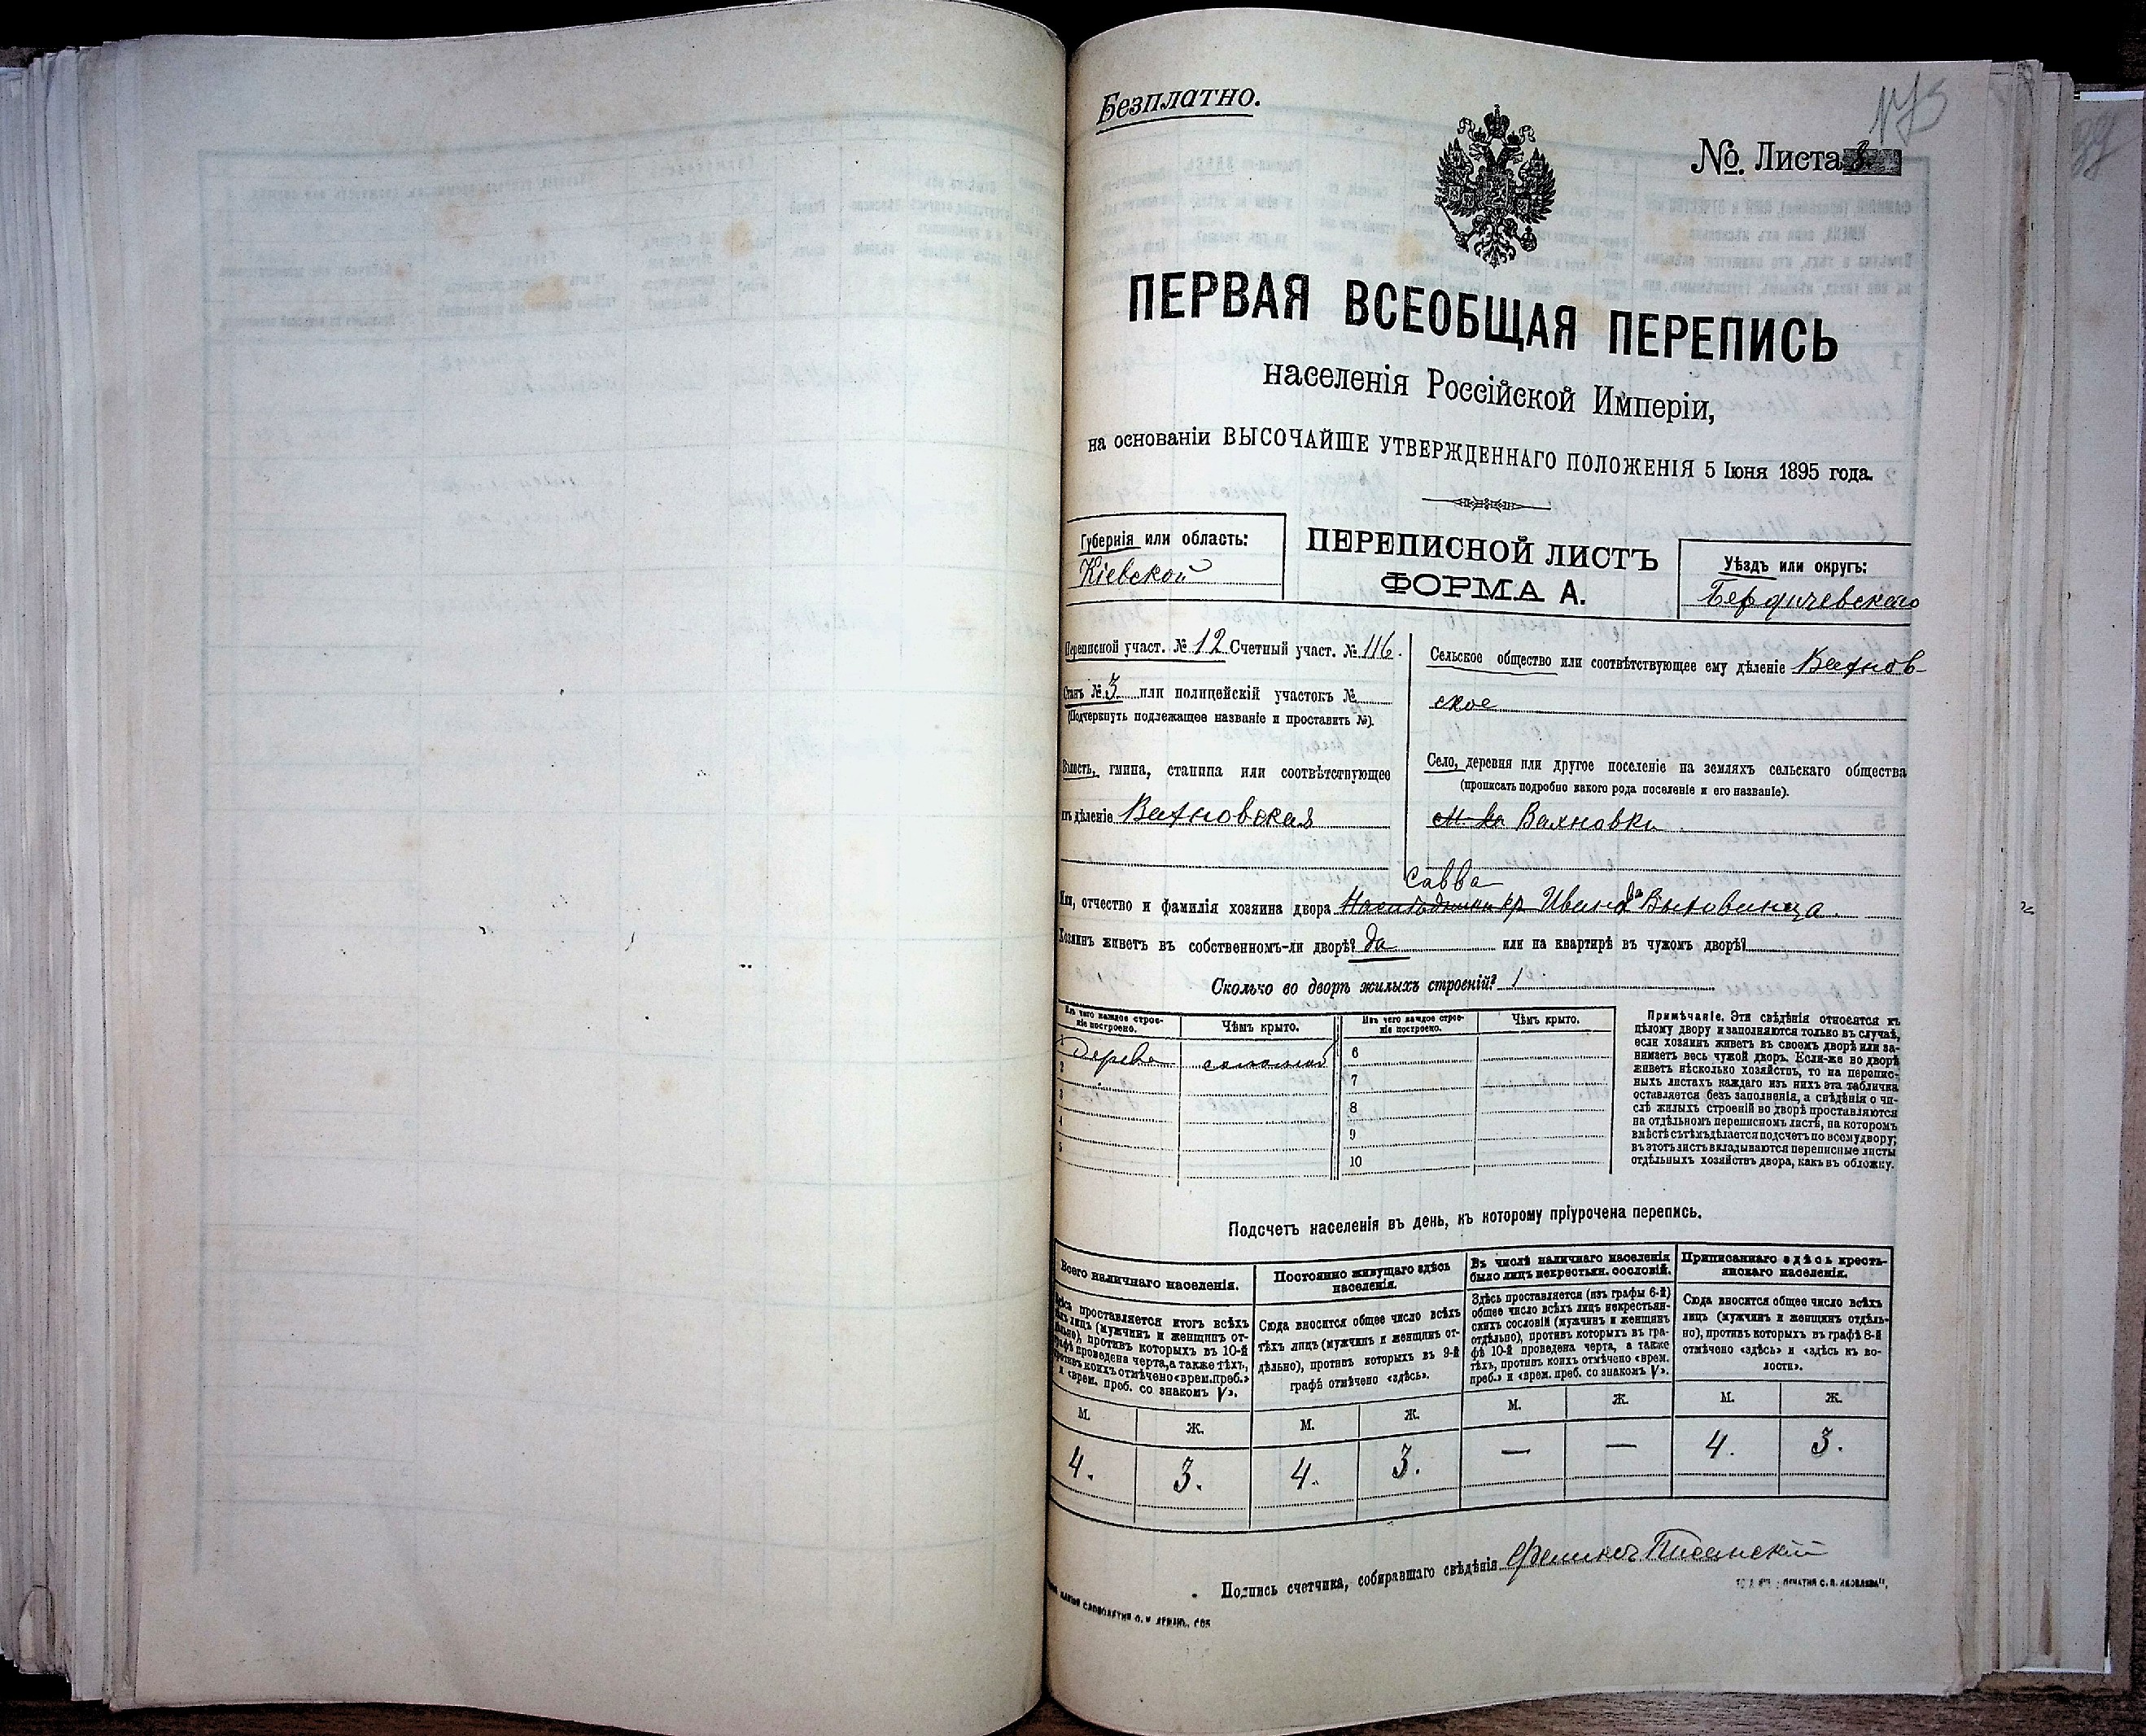 Безплатно.
175
№. Листа 8
ПЕРВАЯ ВСЕОБЩАЯ ПЕРЕПИСЬ
населенія Россійской Имперіи,
на основаніи ВЫСОЧАЙШЕ УТВЕРЖДЕННАГО ПОЛОЖЕНІЯ 5 Іюня 1895 года.
Губернія или область:
Кіевской
ПЕРЕПИСНОЙ ЛИСТЪ
ФОРМА А.
Уѣздъ или округъ:
Бердичевскаго
Переписной участ. № 12 Счетный участ. № 116.
Станъ № 3 или полицейскій участокъ №
(Подчеркнуть подлежащее названіе и проставить №).
Волость, гмина, станица или соотвѣтствующее
имъ дѣленіе Вахновская
Сельское общество или соотвѣтствующее ему дѣленіе Вахнов-
ское
Село, деревня или другое поселеніе на земляхъ сельскаго общества
(прописать подробно какого рода поселеніе и его названіе).
м-ко Вахновки
Савва
Имя, отчество и фамилія хозяина двора Ивано Выховинца.
Хозяинъ живетъ въ собственномъ-ли дворѣ? да или на квартирѣ въ чужомъ дворѣ?
Сколько во дворѣ жилыхъ строеній? 1
Изъ чего каждое строе-
ніе построено.
Чѣмъ крыто.
Изъ чего каждое строе-
ніе построено.
Чѣмъ крыто.
1 дерева соломой
2
3
4
5
6
7
8
9
10
Примѣчаніе. Эти свѣдѣнія относятся къ
цѣлому двору и заполняются только въ случаѣ,
если хозяинъ живетъ въ своемъ дворѣ или за-
нимаетъ весь чужой дворъ. Если-же во дворѣ
живетъ нѣсколько хозяйствъ, то на перепис-
ныхъ листахъ каждаго изъ нихъ эта табличка
оставляется безъ заполненія, а свѣдѣнія о чи-
слѣ жилыхъ строеній во дворѣ проставляются
на отдѣльномъ переписномъ листѣ, на которомъ
вмѣстѣ съ тѣмъ дѣлается подсчетъ по всему двору;
въ этотъ листъ вкладываются переписные листы
отдѣльныхъ хозяйствъ двора, какъ въ обложку.
Подсчетъ населенія въ день, къ которому пріурочена перепись.
Всего наличнаго населенія.
Здѣсь проставляется итогъ всѣхъ
тѣхъ лицъ (мужчинъ и женщинъ от-
дѣльно), противъ которыхъ въ 10-й
графѣ проведена черта, а также тѣхъ,
противъ коихъ отмѣчено «врем. преб.»
и «врем. проб. со знакомъ V».
Постоянно живущаго здѣсь
населенія.
Сюда вносится общее число всѣхъ
тѣхъ лицъ (мужчинъ и женщинъ от-
дѣльно), противъ которыхъ въ 9-й
графѣ отмѣчено «здѣсь».
Въ числѣ наличнаго населенія
было лицъ некрестьян. сословій.
Здѣсь проставляется (изъ графы 6-й)
общее число всѣхъ лицъ некрестьян-
скихъ сословій (мужчинъ и женщинъ
отдѣльно), противъ которыхъ въ гра-
фѣ 10-й проведена черта, а также
тѣхъ, противъ коихъ отмѣчено «врем.
преб.» и «врем. проб. со знакомъ V».
Приписаннаго здѣсь кресть-
янскаго населенія.
Сюда вносится общее число всѣхъ
лицъ (мужчинъ и женщинъ отдѣль-
но), противъ которыхъ въ графѣ 8-й
отмѣчено «здѣсь» и «здѣсь къ во-
лости».
М. Ж. М. Ж. М. Ж. М. Ж.
4. 3. 4. 3. — — 4. 3.
Подпись счетчика, собиравшаго свѣдѣнія Феликсъ Писанскій